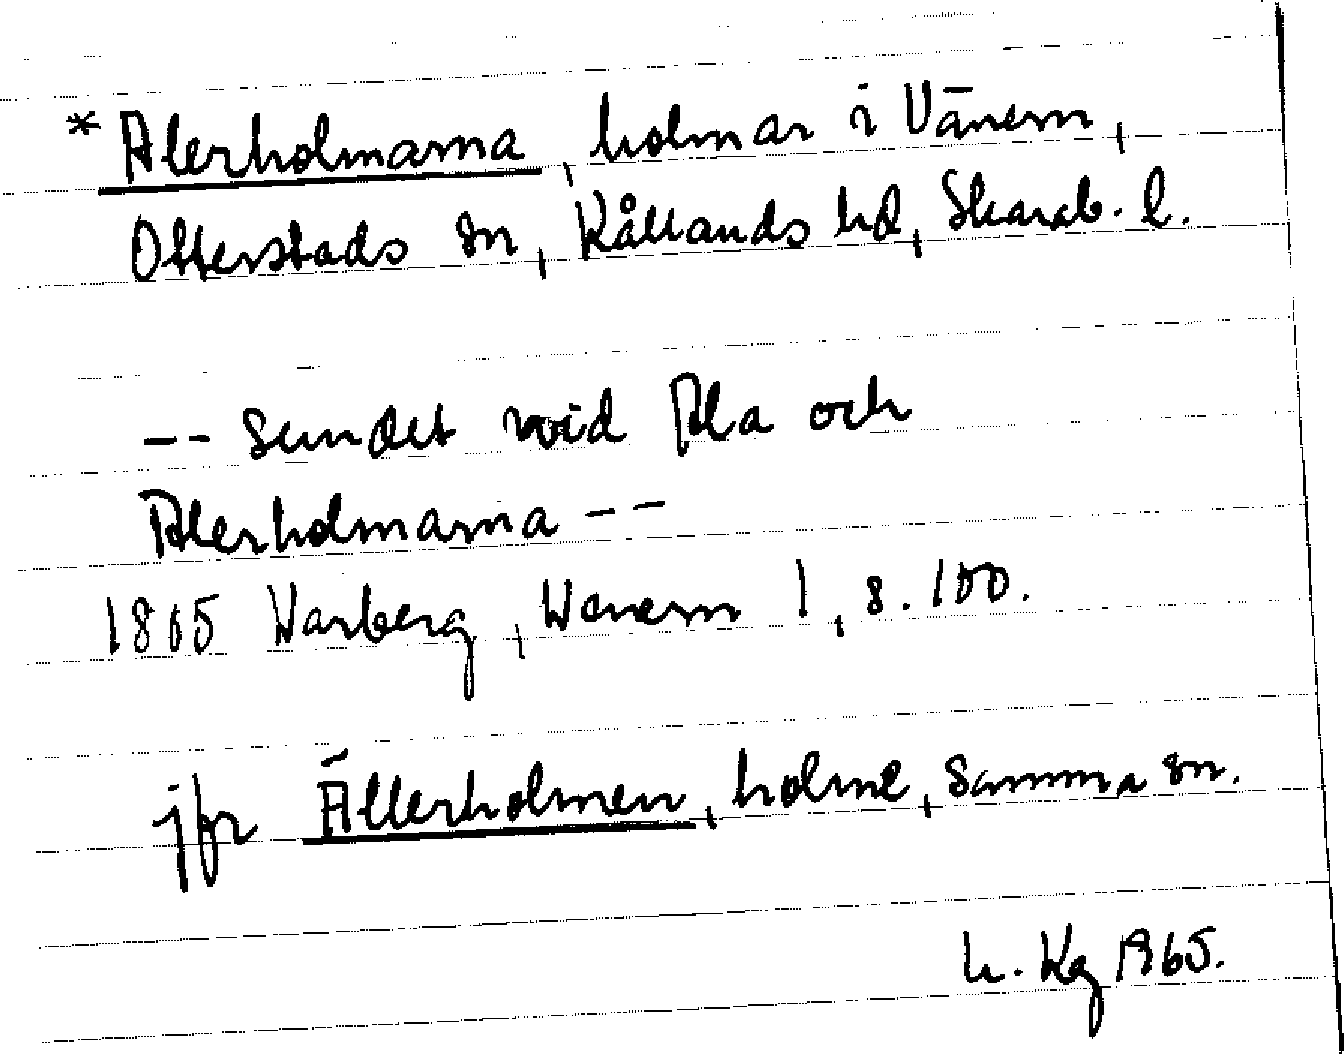 *Alerholmarna, holmar i Vänern,
Otterstads sn, Kållands hd, Skarab. l.
-- sundet wid Ala och
Alerholmarna --
1865 Warberg, Wenern 1, s. 100.
jfr Ållerholmen, holme, samma sn.
h. Kg 1965.